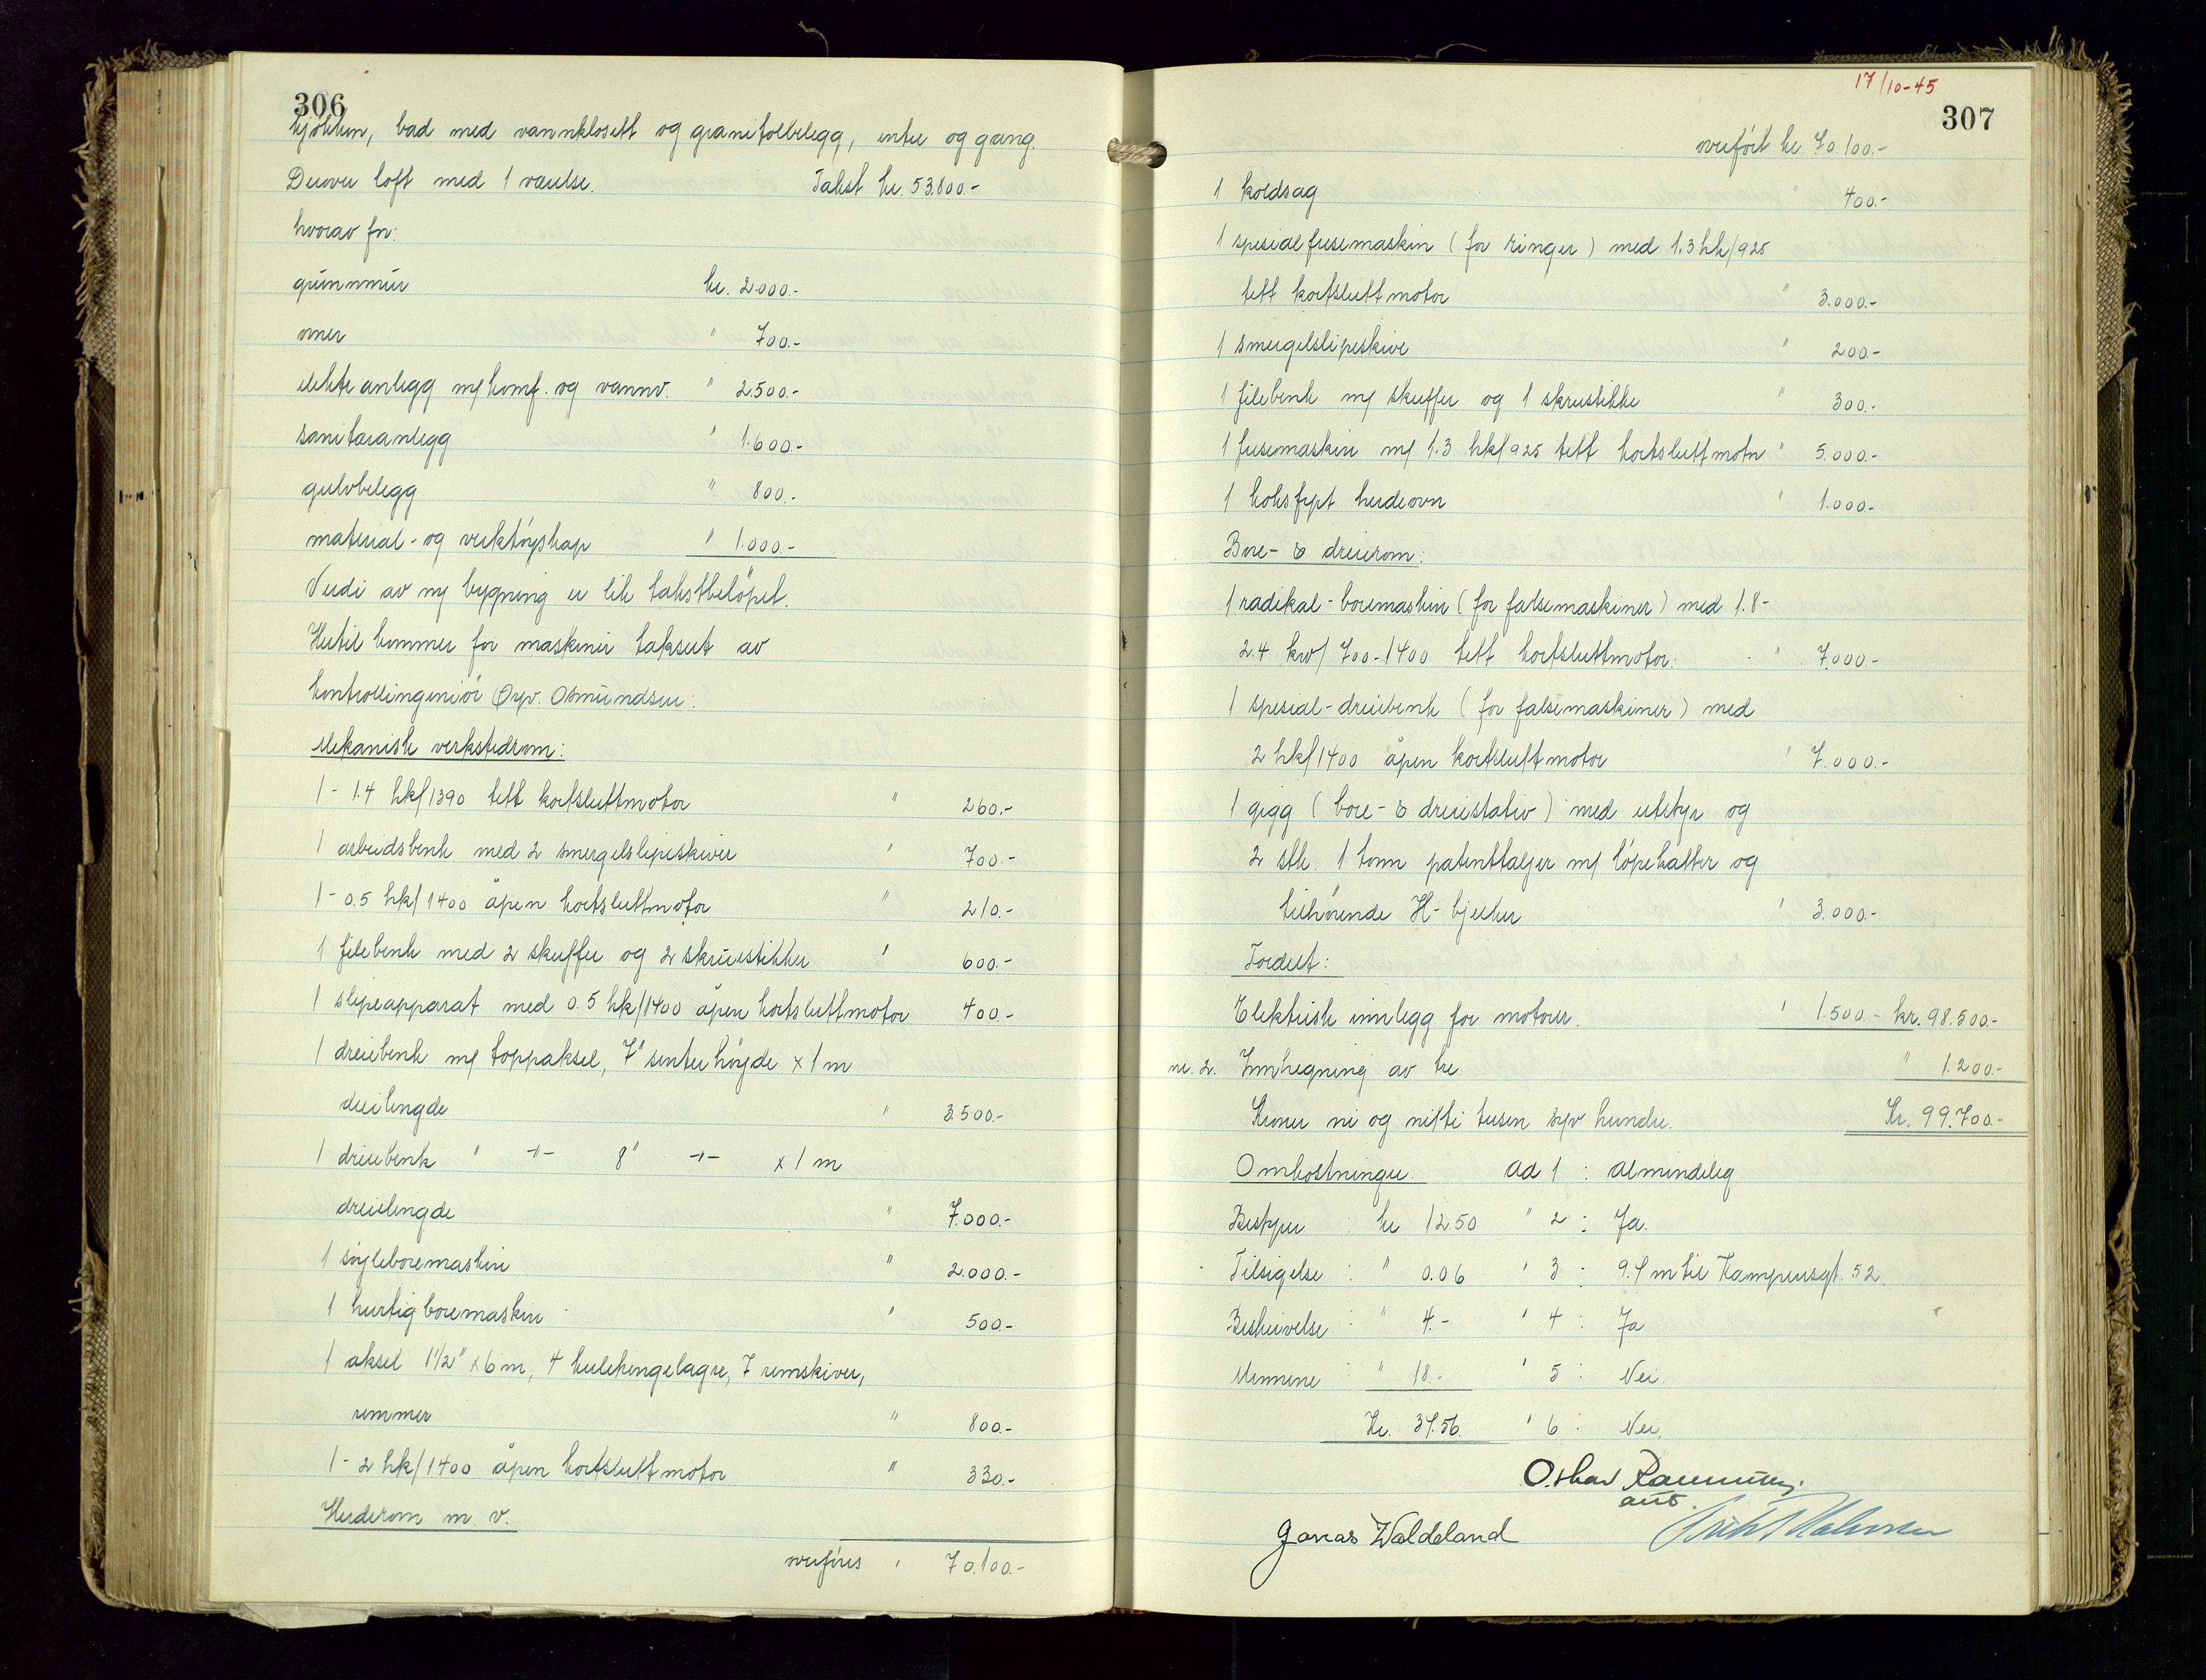 306
kjökken, bad med vannklosett og granitolbelegg, entre og gang.
Derover loft med 1 værelse. Takst kr. 53.800.-
hvorav for:
grunnmur kr. 2.000.-
ovner " 700.-
elektr. anlegg m/ komf. og vannv. " 2.500.-
sanitæranlegg " 1.600.-
gulvbelegg " 800.-
material- og verktöyskap " 1.000.-
Verdi av ny bygning er lik takstbelöpet.
Hertil kommer for maskiner taksert av
kontrollingeniör Öyv. Osmundsen:
Mekanisk verkstedrom:
1 - 1.4 hk/1390 tett kortsluttmotor " 260.-
1 arbeidsbenk med 2 smergelslipeskiver " 700.-
1 - 0.5 hk/1400 åpen kortsluttmotor " 210.-
1 filebenk med 2 skuffer og 2 skruestikker " 600.-
1 slipeapparat med 0.5 hk/1400 åpen kortsluttmotor 400.-
1 dreiebenk m/ toppaksel, 7" senterhöyde x 1 m
dreielengde " 3.500.-
1 dreiebenk " -"- 8" -"- x 1 m
dreielengde " 7.000.-
1 söyleboremaskin " 2.000.-
1 hurtigboremaskin " 500.-
1 aksel 1 1/2" x 6 m, 4 kulehengelagre, 7 remskiver,
remmer " 800.-
1 - 2 hk/1400 åpen kortsluttmotor " 330.-
Herderom m. v.
overföres " 70.100.-
17/10-45
307
overfört kr. 70.100.-
1 koldsag " 400.-
1 spesialfresemaskin (for ringer) med 1.3 hk/925
tett kortsluttmotor " 3.000.-
1 smergelslipeskive " 200.-
1 filebenk m/ skuffer og 1 skrustikke " 300.-
1 fresemaskin m/ 1.3 hk/925 tett kortsluttmotor " 5.000.-
1 koksfyrt herdeovn " 1.000.-
Bore- & dreierom:
1 radikal-boremaskin (for falsemaskiner) med 1.8-
2.4 kw/ 700-1400 tett kortsluttmotor. " 7.000.-
1 spesial-dreiebenk (for falsemaskiner) med
2 hk/1400 åpen kortsluttmotor " 7.000.-
1 gigg (bore- & dreiestativ) med utstyr og
2 stk. 1 tonn patenttaljer m/ löpekatter og
tilhörende H-bjelker " 3.000.-
Fordelt:
Elektrisk innlegg for motorer. " 1.500.- kr. 98.500.-
nr. 2. Innhegning av tre " 1.200.-
Kroner ni og nitti tusen syv hundre. Kr. 99.700.-
Omkostninger. Ad 1 : Almindelig
Bestyrer : kr 12.50 " 2 : Ja.
Tilsigelse : " 0.06 " 3 : 9.4 m til Kampensgt. 52
Beskrivelse : " 4.- " 4 : Ja
Mennene : " 18.- " 5 : Nei.
Kr. 34.56. " 6 : Nei.
Oskar
Jonas Waldeland